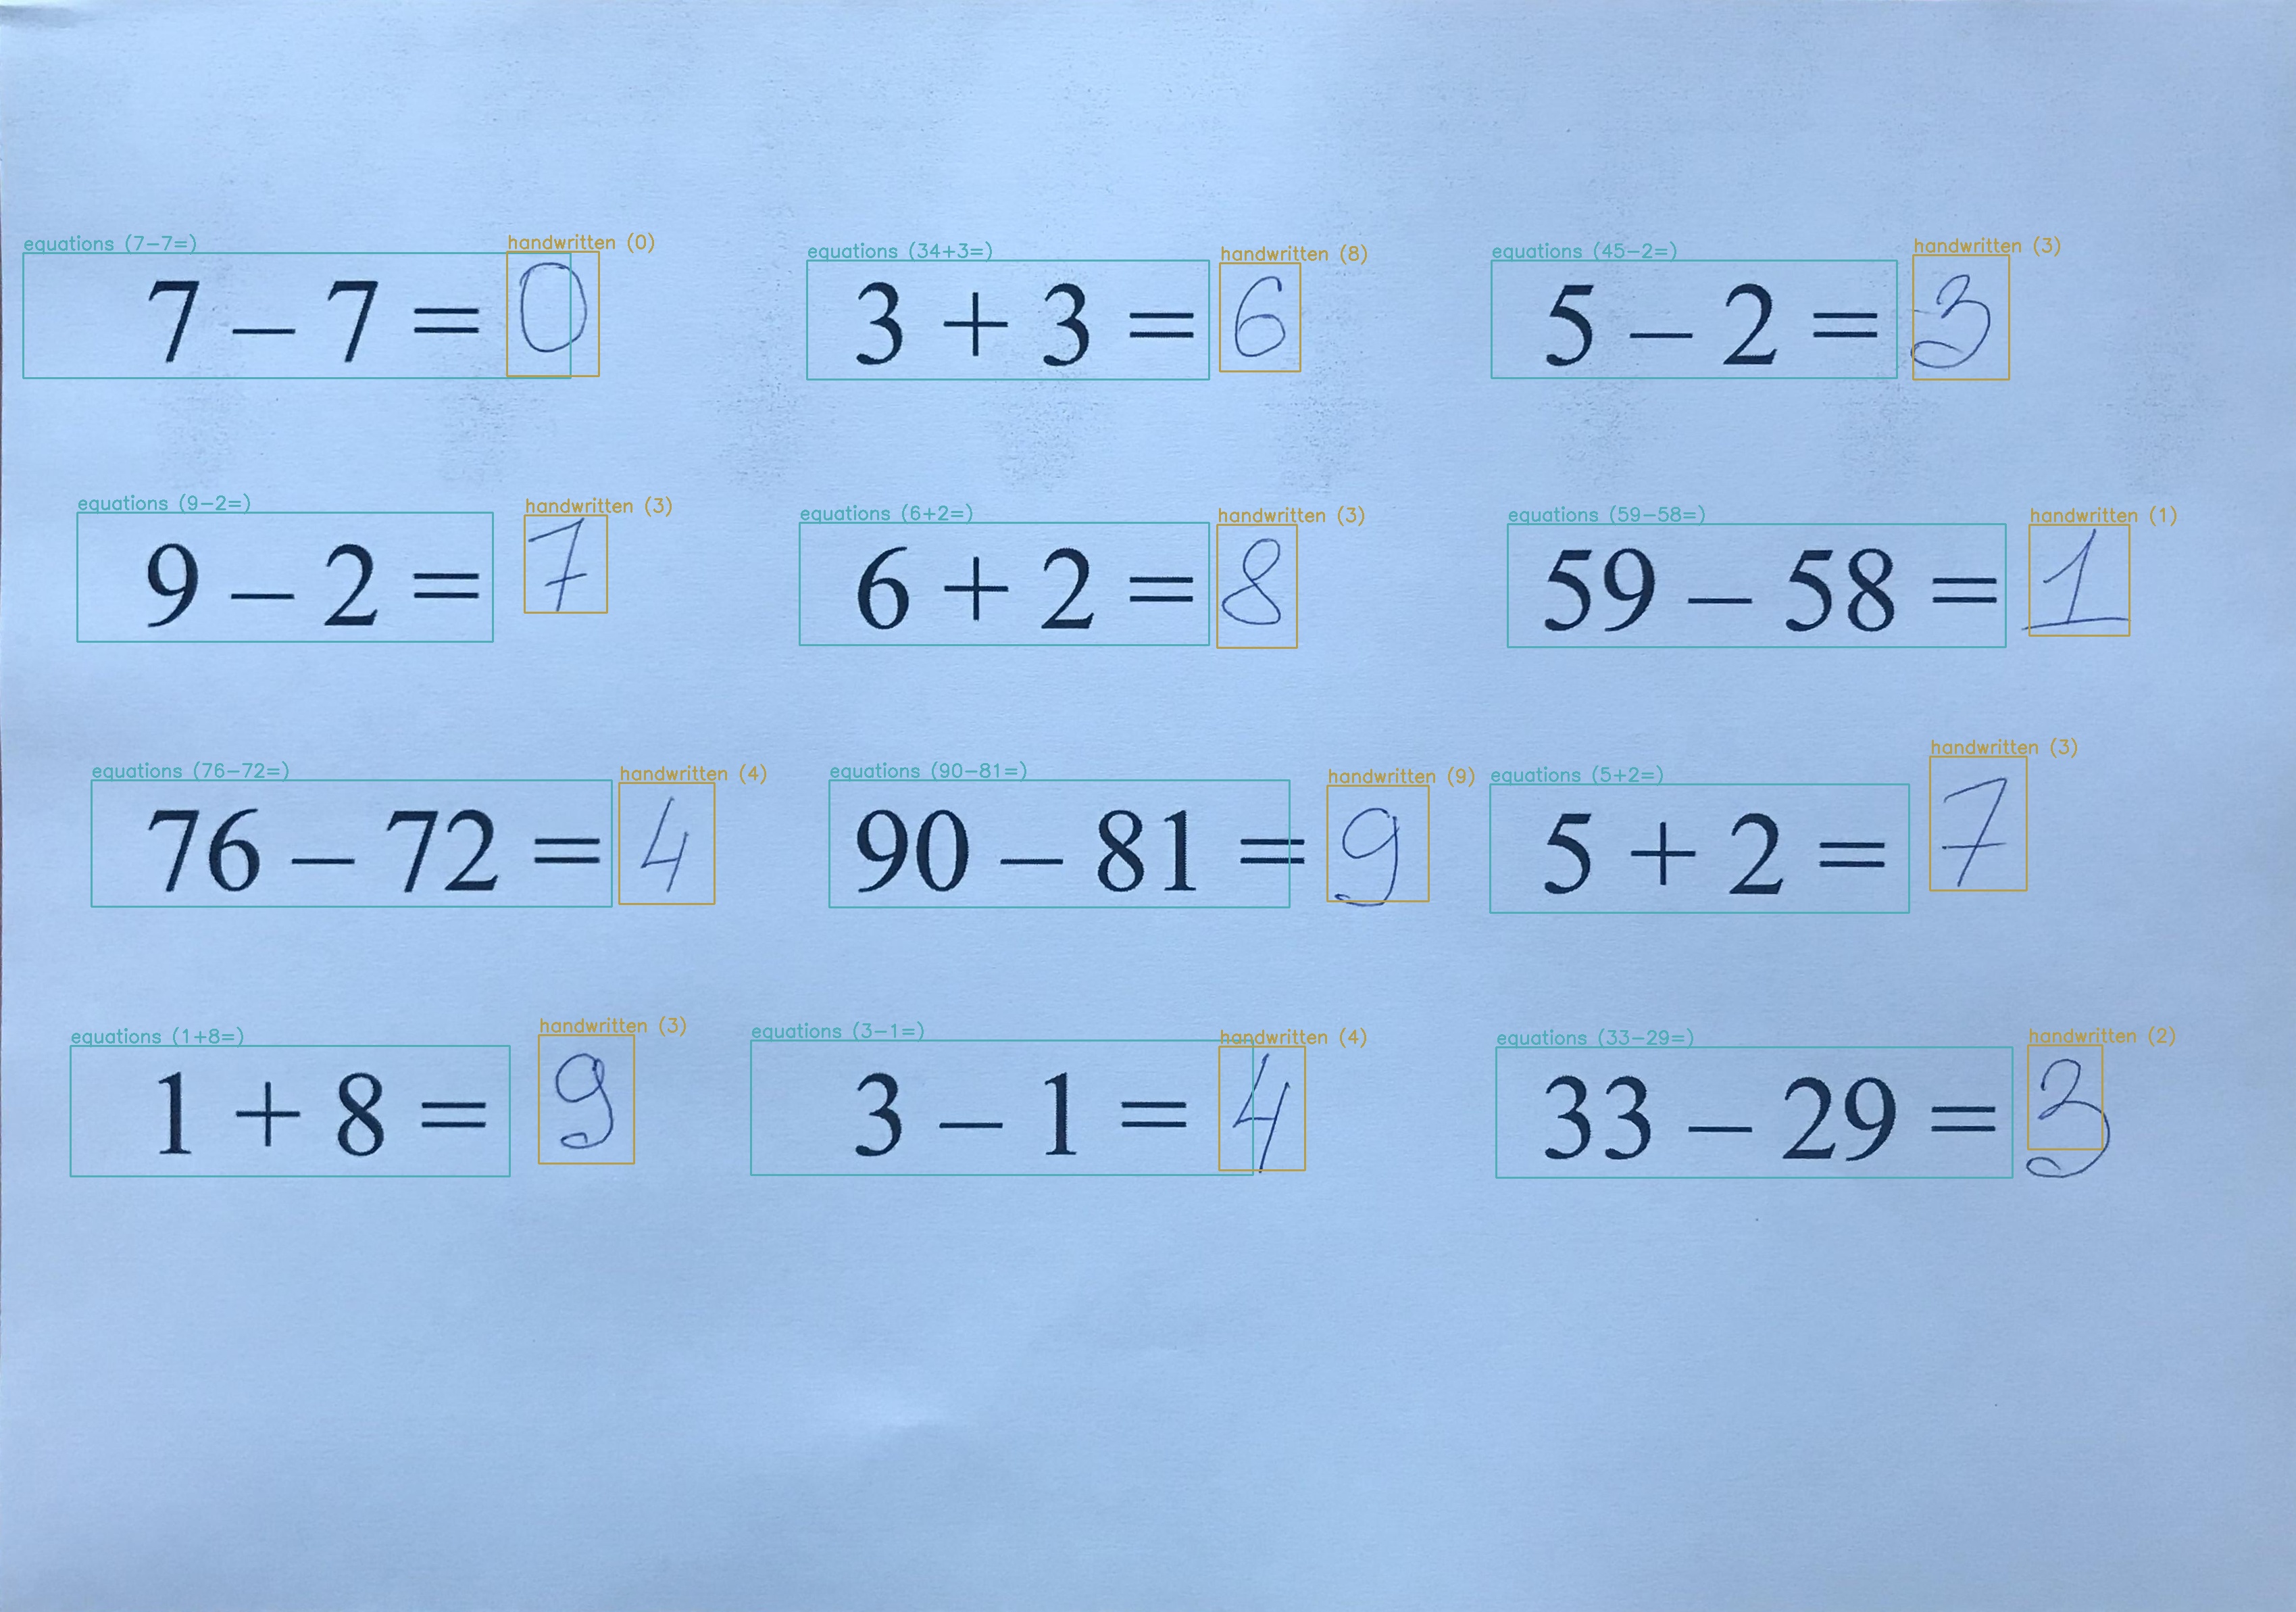 equations (7-7=) handwritten (0) equations (34+3=) handwritten (8) equations (45-2=) handwritten (3)
7 – 7 = 0 3 + 3 = 6 5 – 2 = 3
equations (9-2=) handwritten (3) equations (6+2=) handwritten (3) equations (59-58=) handwritten (1)
9 – 2 = 7 6 + 2 = 8 59 – 58 = 1
equations (76-72=) handwritten (4) equations (90-81=) handwritten (9) equations (5+2=) handwritten (3)
76 – 72 = 4 90 – 81 = 9 5 + 2 = 7
equations (1+8=) handwritten (3) equations (3-1=) handwritten (4) equations (33-29=) handwritten (2)
1 + 8 = 9 3 – 1 = 4 33 – 29 = 3